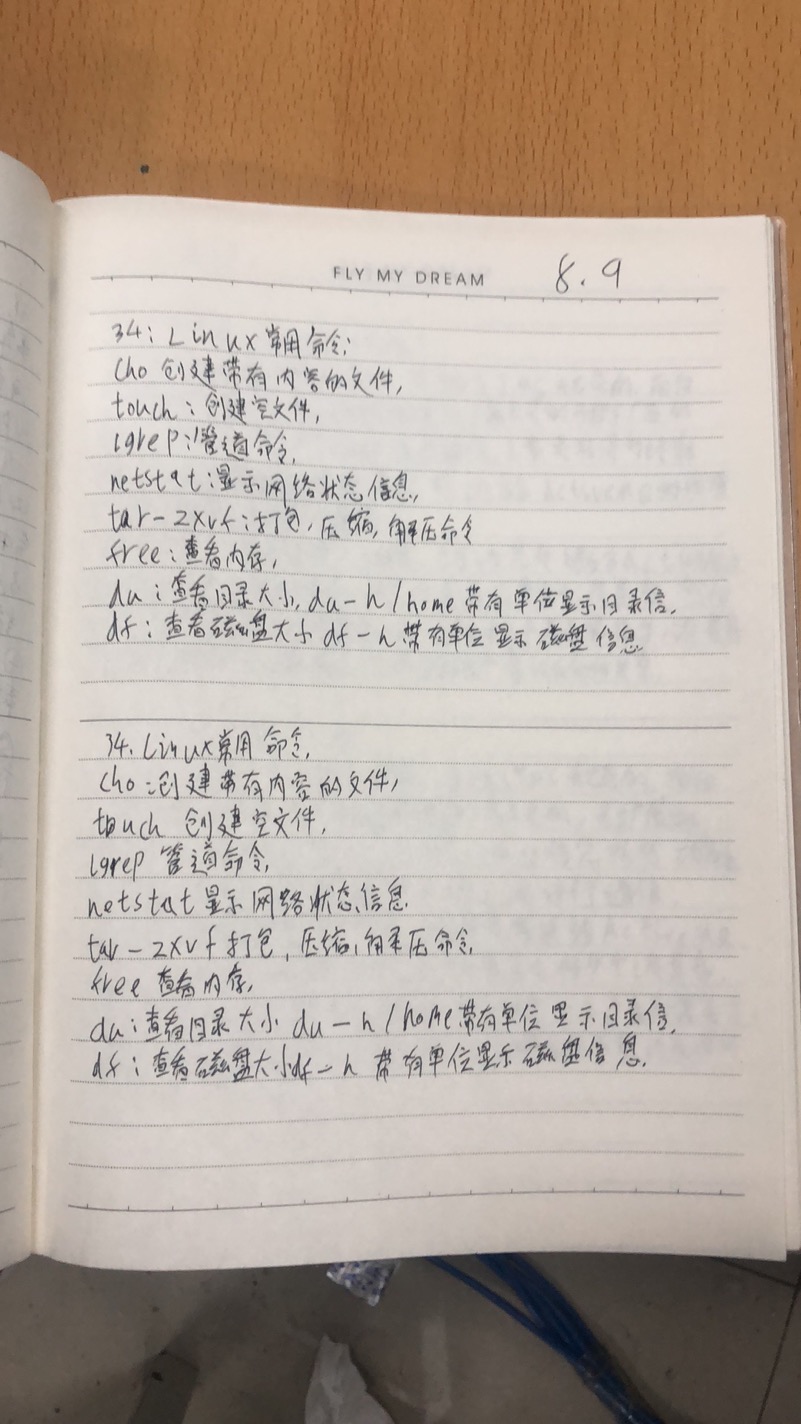 FLY MY DREAM 8.9
34: Linux常用命令:
Cho 创建带有内容的文件,
touch: 创建空文件,
lgrep: 管道命令,
netstat: 显示网络状态信息,
tar-zxvf: 打包, 压缩, 解压命令
free: 查看内存,
du: 查看目录大小, du-h /home 带有单位显示目录信,
df: 查看磁盘大小 df-h 带有单位显示磁盘信息
34. Linux常用命令,
Cho: 创建带有内容的文件,
touch 创建空文件,
lgrep 管道命令,
netstat 显示网络状态信息
tar-zxvf 打包, 压缩, 解压命令,
free 查看内存,
du: 查看目录大小 du-h /home 带有单位显示目录信,
df: 查看磁盘大小df-h 带有单位显示磁盘信息.